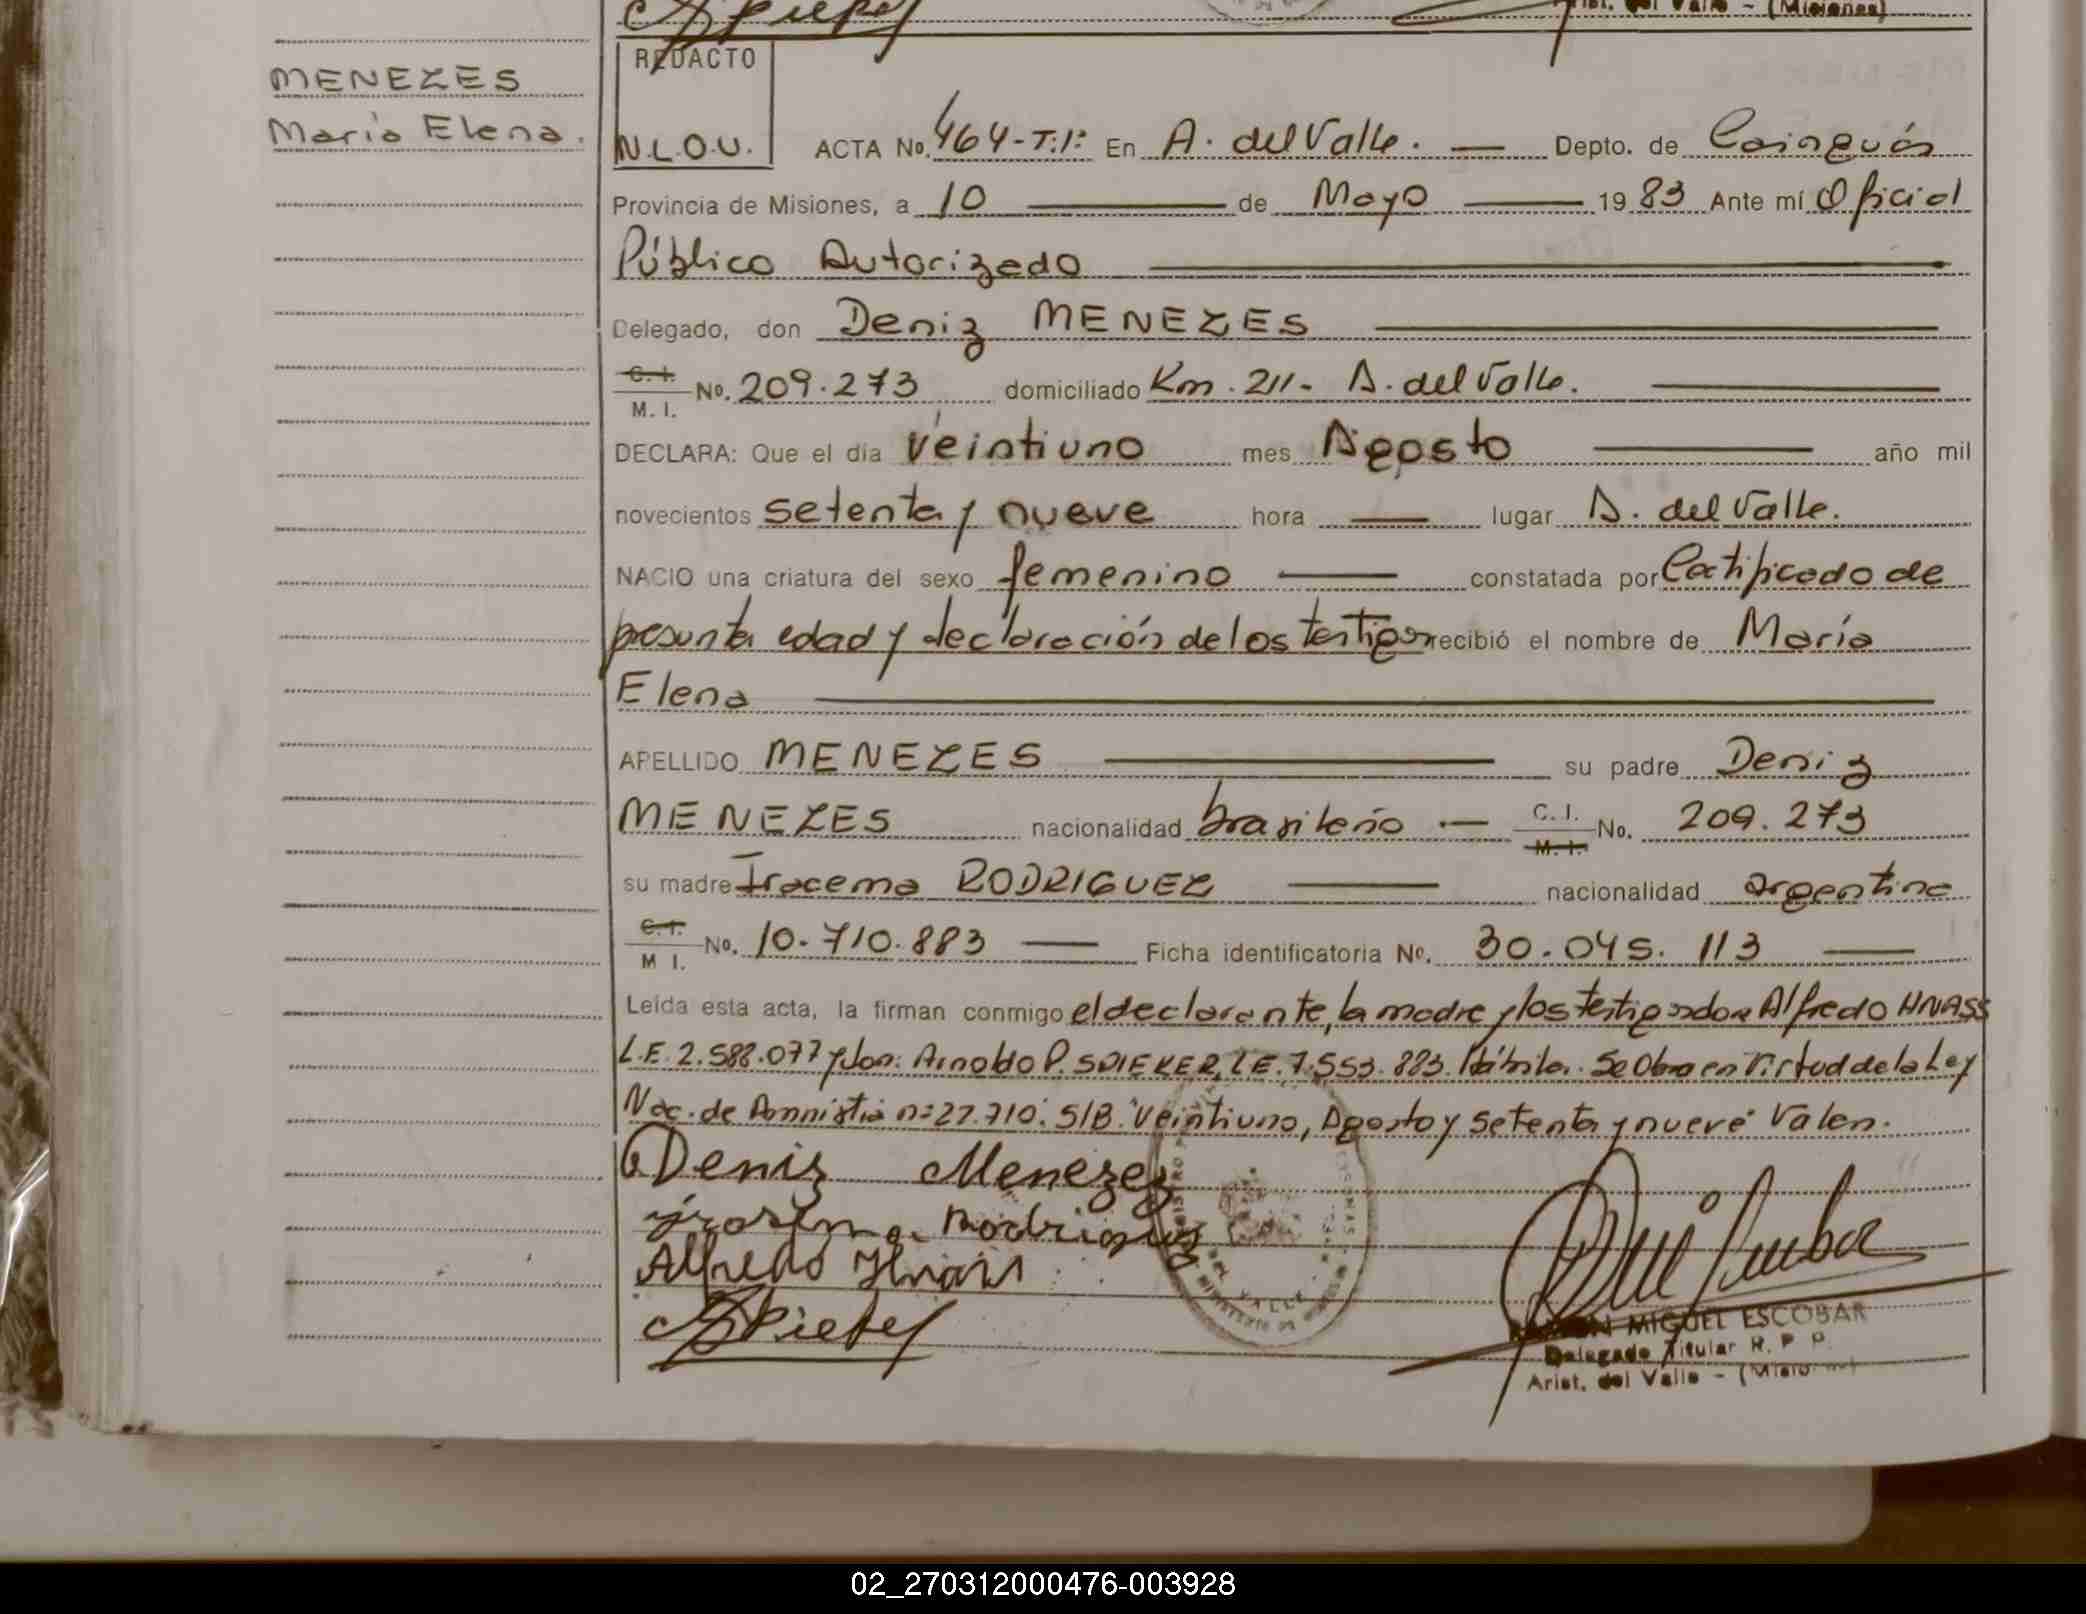 Arist. del Valle - (Misiones)
MENEZES
María Elena.
REDACTO
N.L.O.U.
ACTA No. 464-T.1º En A. del Valle. — Depto. de Cainguás
Provincia de Misiones, a 10 — de Mayo — 1983 Ante mí Oficial
Público Autorizado —
Delegado, don Deniz MENEZES —
C. I. M. I. No. 209.273 domiciliado Km. 211- A. del Valle. —
DECLARA: Que el día veintiuno mes Agosto — año mil
novecientos setenta y nueve hora — lugar A. del Valle.
NACIO una criatura del sexo femenino — constatada por Certificado de
presunta edad y declaración de los testigos recibió el nombre de María
Elena —
APELLIDO MENEZES — su padre Deniz
MENEZES nacionalidad brasileño — C. I. M. I. No. 209.273
su madre Iracema RODRIGUEZ — nacionalidad argentina
C. I. M I. No. 10.710.883 — Ficha identificatoria No. 30.045.113 —
Leída esta acta, la firman conmigo el declarante, la madre y los testigos don Alfredo HNASS
L.E. 2.588.077 y don: Arnoldo P. L.E. 7.553.883. Hábiles. Se Obra en Virtud de la Ley
Nac. de Amnistía nº 27.710. S/B. "Veintiuno, Agosto y setenta y nueve" Valen.
Deniz Menezez
Rodriguez
Alfredo Hnass
RAMON MIGUEL ESCOBAR
Delegado Titular R. P. P.
Arist. del Valle - (Misiones)
VALLE
02_270312000476-003928